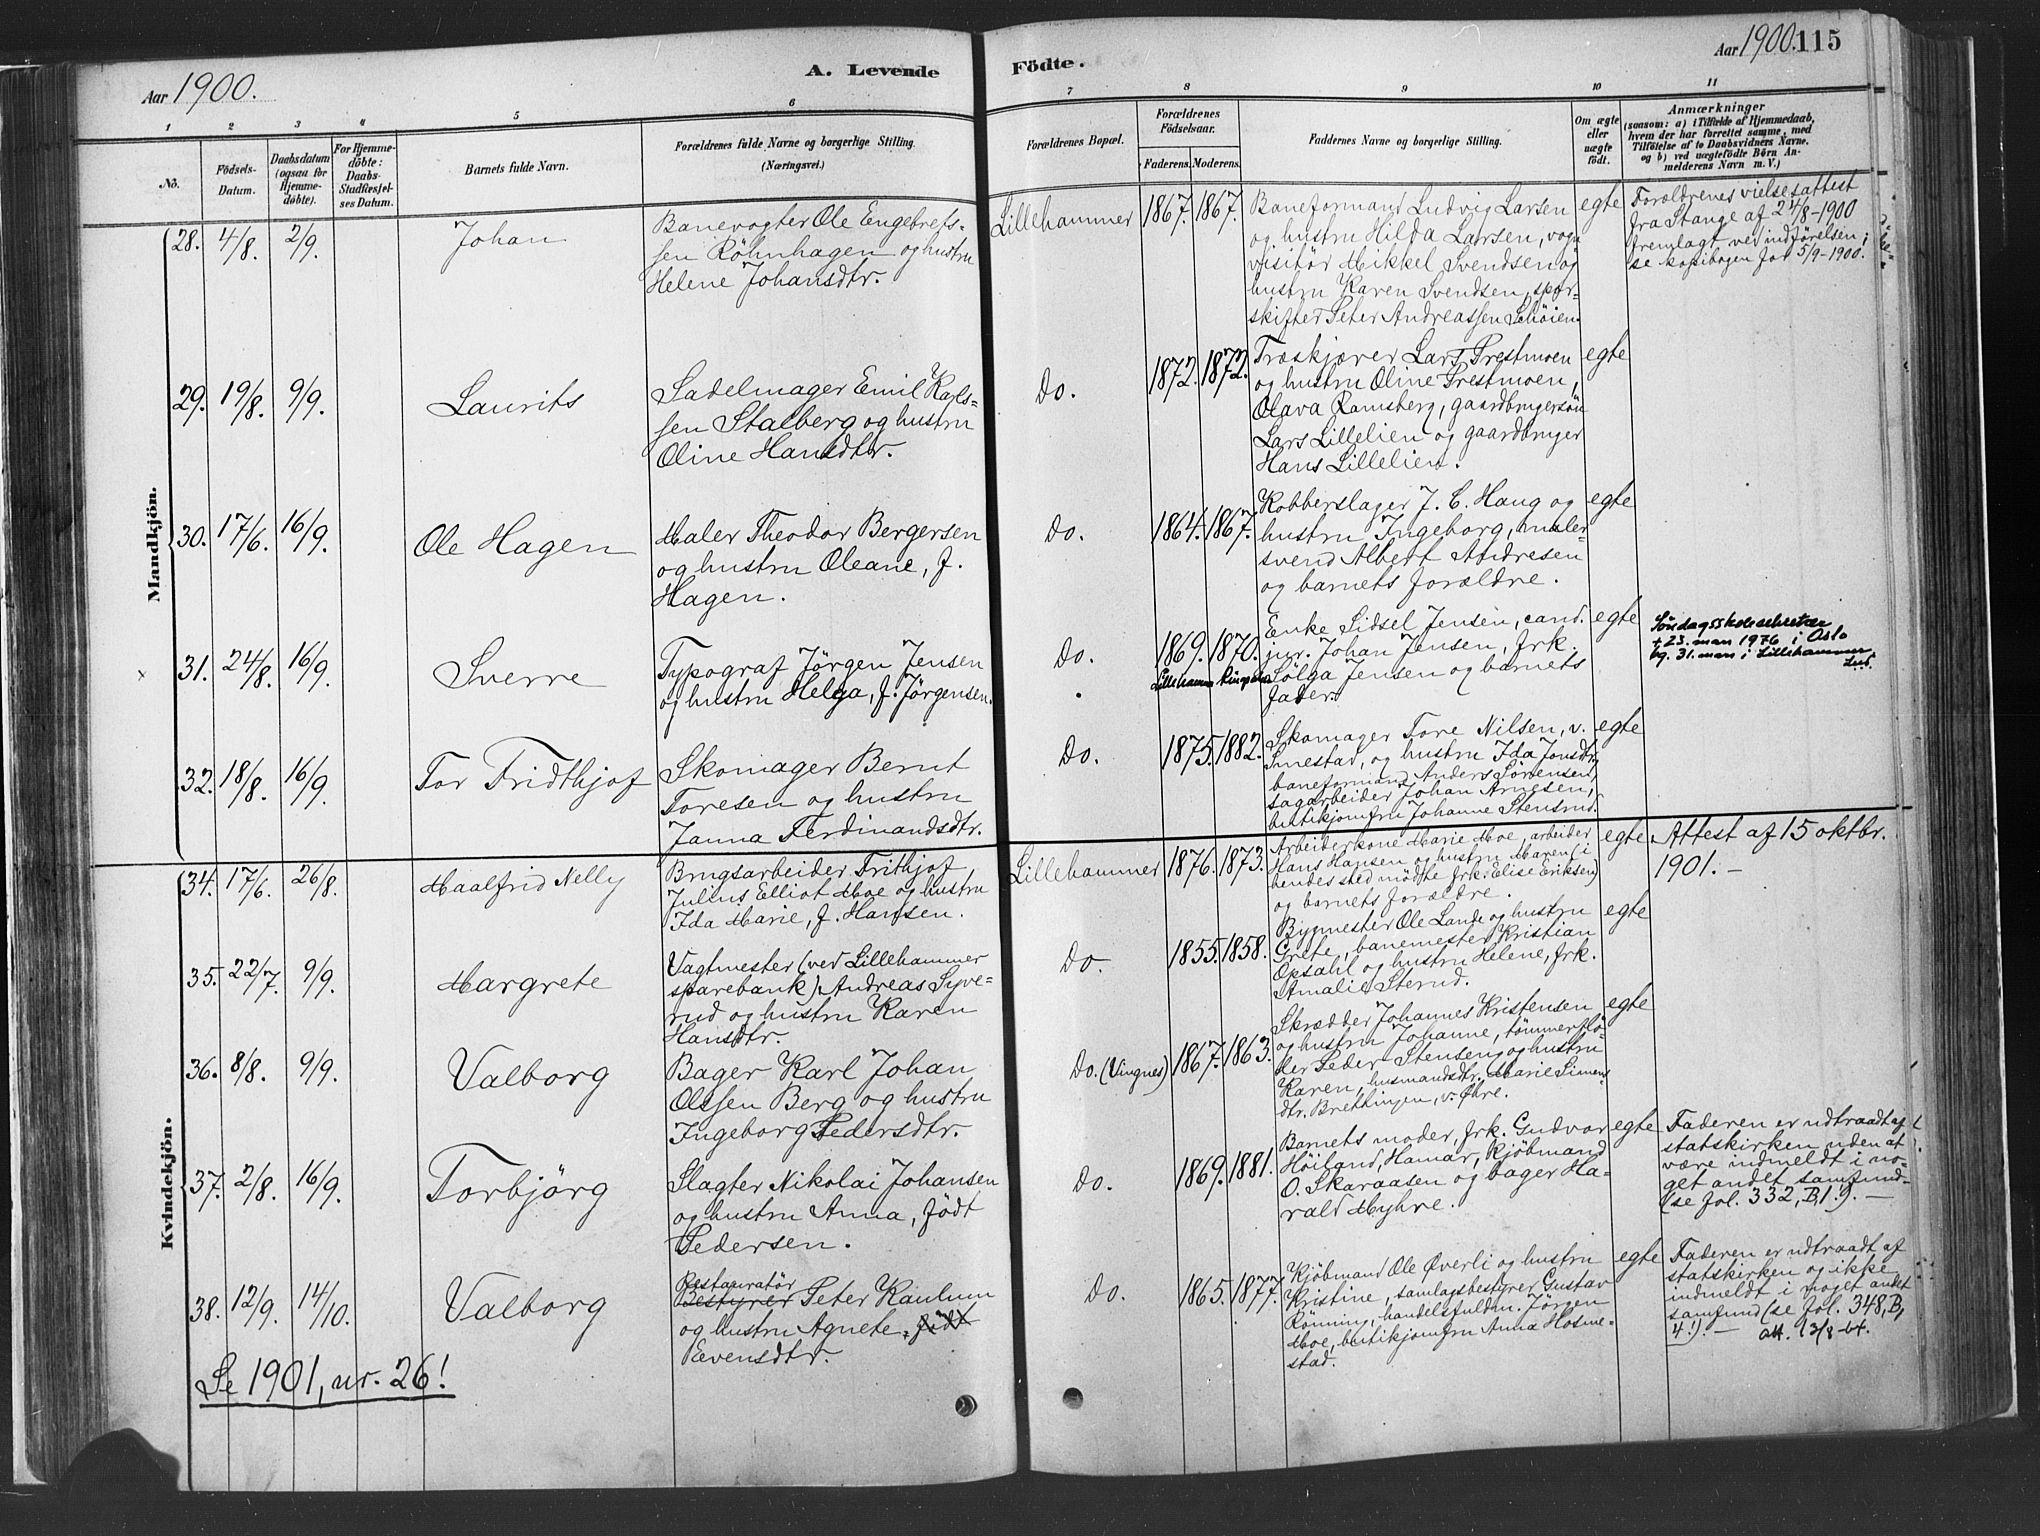 Aar 1900.
A. Levende
Födte.
Aar 1900. 115
1 2 3 4 5 6 7 8 9 10 11
No.
Födsels-
Datum.
Daabsdatum
(ogsaa for
Hjemme-
döbte).
For Hjemme-
döbte:
Daabs-
Stadfæstel-
ses Datum.
Barnets fulde Navn.
Forældrenes fulde Navne og borgerlige Stilling.
(Næringsvei.)
Forældrenes Bopæl.
Forældrenes
Födselsaar.
Faderens. Moderens.
Faddernes Navne og borgerlige Stilling.
Om ægte
eller
uægte
födt.
Anmærkninger
(saasom: a) i Tilfælde af Hjemmedaab,
hvem der har forrettet samme, med
Tilföielse af to Daabsvidners Navne.
og b) ved uægtefödte Börn An-
melderens Navn m. V.)
Mandkjön.
28. 4/8. 2/9.
Johan
Banevogter Ole Engebrets-
sen Röhnhagen og hustru
Helene Johansdtr.
Lillehammer
1867. 1867.
Baneformand Ludvig Larsen
og hustru Hilda Larsen, vogn
visitör Mikkel Svendsen og
hustru Karen Svendsen, spor-
skifter Peter Andreassen Schöien.
egte
Forældrenes vielsesattest
fra Stange af 24/8-1900
fremlagt ved indförelsen;
se kopibogen fol 5/9-1900.
29. 19/8. 9/9.
Laurits
Sadelmager Emil Karls-
sen Stalberg og hustru
Oline Hansdtr.
Do.
1872. 1872.
Træskjærer Lars Prestmoen
og hustru Oline Prestmoen,
Olava Ramsberg, gaardbrugersön
Lars Lillelien og gaardbruger
Hans Lillelien.
egte
30. 17/6. 16/9.
Ole Hagen
Maler Theodor Bergersen
og hustru Oleane, f.
Hagen.
Do.
1864. 1867.
Kobberslager J. C. Haug og
hustru Ingeborg, maler-
svend Albert Andresen
og barnets forældre.
egte
31. 24/8. 16/9.
Sverre
Typograf Jörgen Jensen
og hustru Helga, f. Jörgensen.
Do.
1869. 1870.
Lillehammer Ringsaker
Enke Sidsel Jensen, cand.
jur. Johan Jensen, frk.
Sölga Jensen og barnets
fader.
egte
Söndagsskolesekretær
+ 23. mars 1976 i Oslo
bg. 31. mars i Lillehammer
32. 18/8. 16/9.
Tor Fridthjof
Skomager Bernt
Toresen og hustru
Janna Ferdinandsdtr.
Do.
1875. 1882.
Skomager Tore Nilsen, v.
Smestad, og hustru Ida Jonsdtr,
baneformand Anders Sörensen,
sagarbeider Johan Arnesen,
butikjomfru Johanne Stensrud.
egte
Kvindekjön.
34. 17/6. 26/8.
Maalfrid Nelly
Brugsarbeider Frithjof
Julius Elliot Moe og hustru
Ida Marie, f. Hansen.
Lillehammer
1876. 1873.
Arbeiderkone Marie Moe, arbeider
Hans Hansen og hustru Maren (i
hendes sted mödte frk. Elise Eriksen)
og barnets forældre.
egte
Attest af 15 oktbr.
1901. —
35. 22/7. 9/9.
Margrete
Vagtmester (ved Lillehammer
sparebank) Andreas Syve-
rud og hustru Karen
Hansdtr.
Do.
1855. 1858.
Bygmester Ole Lande og hustru
Grete, banemester Kristian
Opsahl og hustru Helene, frk.
Amalie Sterud.
egte
36. 8/8. 9/9.
Valborg
Bager Karl Johan
Olssen Berg og hustru
Ingeborg Pedersdtr.
Do. (Vingnes)
1867. 1863.
Skrædder Johannes Kristensen
og hustru Johanne, tömmerflö-
der Peder Stenseng og hustru
Karen, husmandsdtr. Marie Simens
dtr. Brettingen, v. Öhre.
egte
37. 2/8. 16/9.
Torbjörg
Slagter Nikolai Johansen
og hustru Anna, födt
Pedersen.
Do.
1869. 1881.
Barnets moder, frk. Gudvor
Höiland, Hamar, kjöbmand
O. Skaraasen og bager Ha-
rald Myhre.
egte
Faderen er udtraadt af
statskirken uden at
være indmeldt i no-
get andet samfund
(se fol. 332, B, 1.). —
38. 12/9. 14/10.
Valborg
Restauratör
Bestyrer Peter Kaulum
og hustru Agnete, födt
Evensdtr.
Do.
1865. 1877.
Kjöbmand Ole Överli og hustru
Kristine, samlagsbestyrer Gustav
Rönning, handelsfuldm. Jörgen
Moe, butikjomfru Anna Hosme-
stad.
egte
Faderen er udtraadt af
statskirken og ikke
indmeldt i noget andet
samfund (se fol. 348, B,
4.!). — att. 13/8-64.
Se 1901, nr. 26!